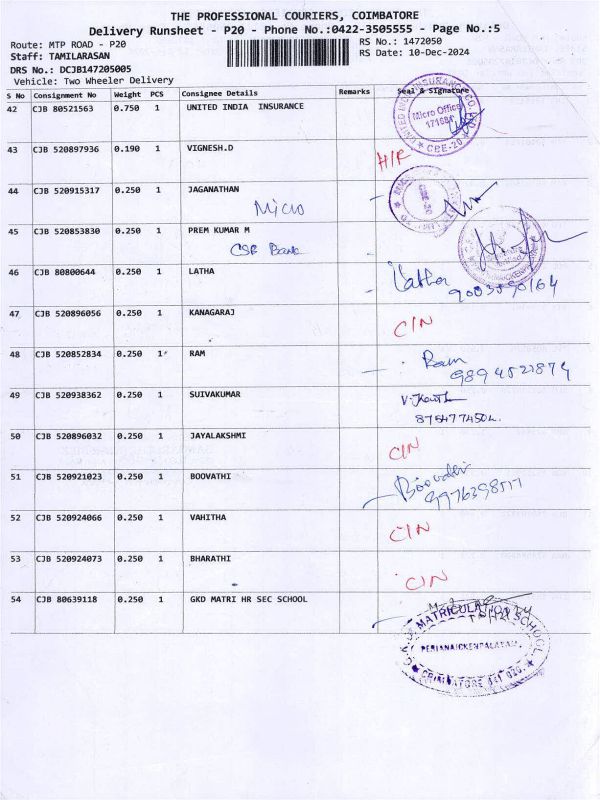 THE PROFESSIONAL COURIERS, COIMBATORE
Delivery Runsheet - P20 - Phone No.:0422-3505555 - Page No.:5
Route: MTP ROAD - P20 RS No.: 1472050
Staff: TAMILARASAN RS Date: 10-Dec-2024
DRS No.: DCJB147205005
Vehicle: Two Wheeler Delivery
S No Consignment No Weight PCS Consignee Details Remarks Seal & Signature
42 CJB 80521563 0.750 1 UNITED INDIA INSURANCE
Micro Office
171884
CBE-20
43 CJB 520897936 0.190 1 VIGNESH.D H/R
44 CJB 520915317 0.250 1 JAGANATHAN
Micro
45 CJB 520853830 0.250 1 PREM KUMAR M
CSB Bank
46 CJB 80800644 0.250 1 LATHA Latha
9003590164
47 CJB 520896056 0.250 1 KANAGARAJ C/N
48 CJB 520852834 0.250 1 RAM Ram
9894521874
49 CJB 520938362 0.250 1 SUIVAKUMAR
50 CJB 520896032 0.250 1 JAYALAKSHMI C/N
51 CJB 520921023 0.250 1 BOOVATHI Boovathi
52 CJB 520924066 0.250 1 VAHITHA C/N
53 CJB 520924073 0.250 1 BHARATHI C/N
54 CJB 80639118 0.250 1 GKD MATRI HR SEC SCHOOL
MATRICULATION SCHOOL
PERIANAICKENPALAYAM